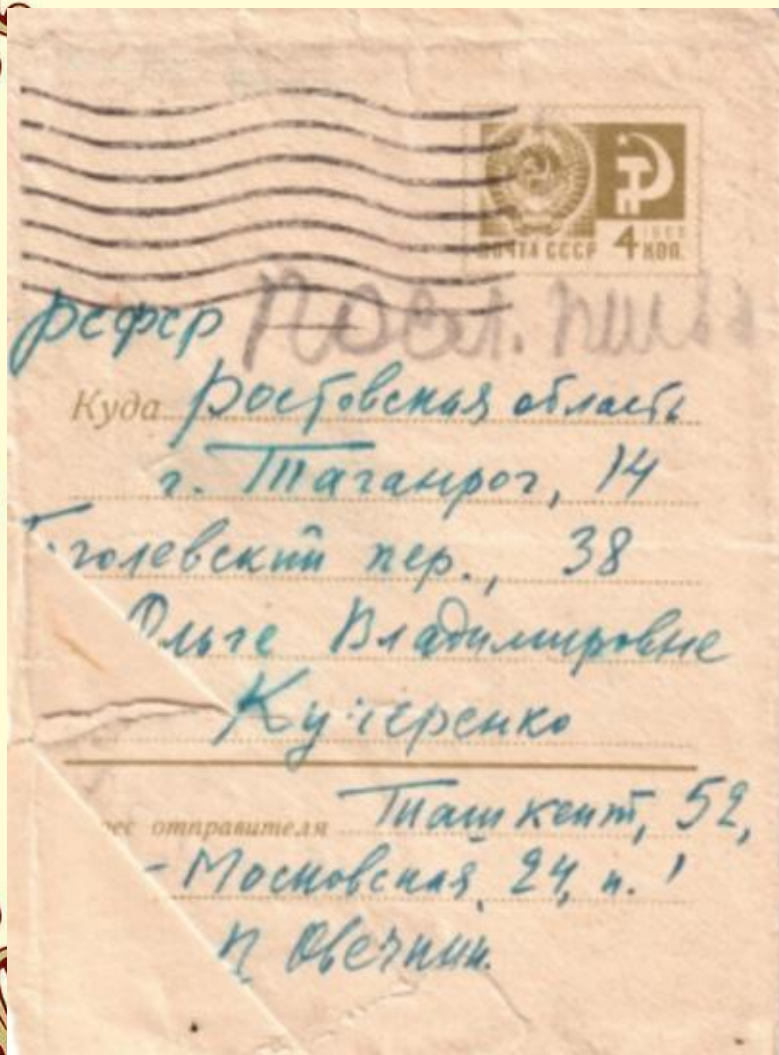 ПОЧТА СССР 4 КОП.
1966
РСФСР посл. письмо
Куда Ростовская область
г. Таганрог, 14
Гоголевский пер., 38
Ольге Владимировне
Кучеренко
рес отправителя Ташкент, 52,
Московская, 24, к. 1
В Овечкин.